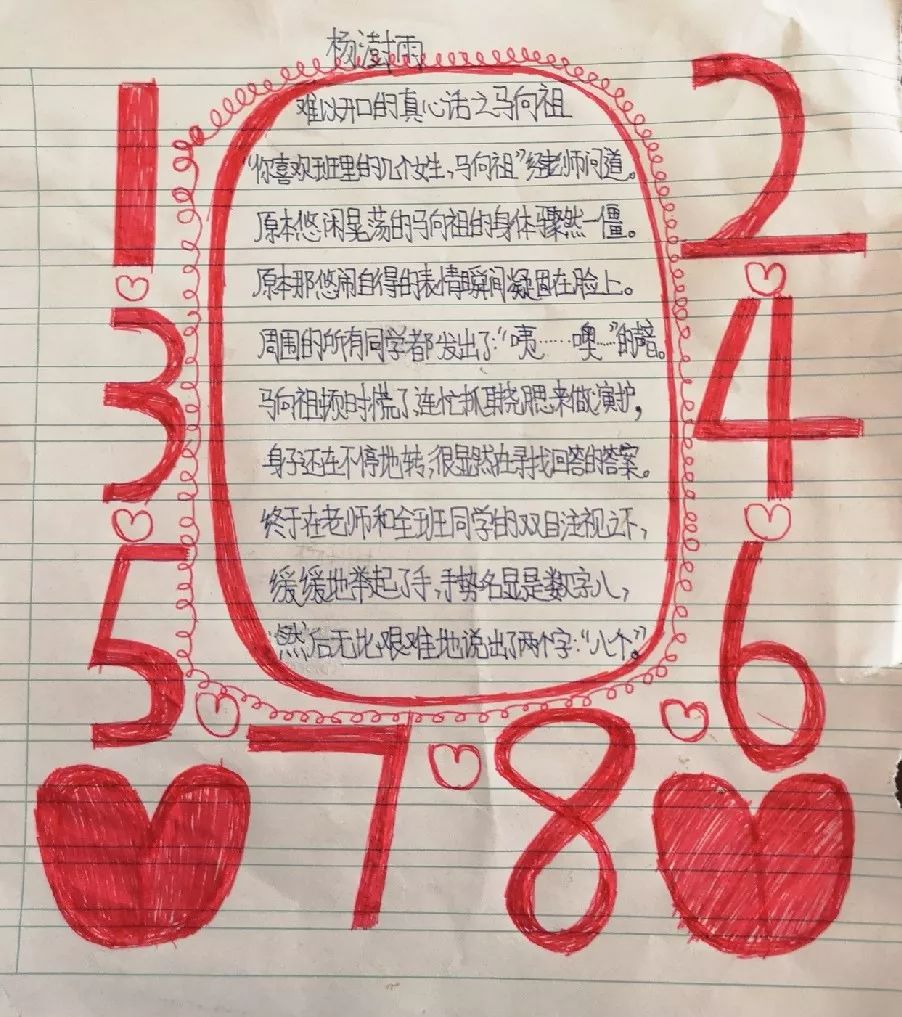 杨澍雨
难以开口的真心话之马向祖
"你喜欢班里的几个女生,马向祖"经老师问道。
原本悠闲晃荡的马向祖的身体骤然一僵。
原本那悠闹自得的表情瞬间凝固在脸上。
周围的所有同学都发出了"咦……噢……"的声音。
马向祖顿时慌了,连忙抓耳挠腮来做演护,
身子还在不停地转,很显然在寻找回答的答案。
终于在老师和全班同学的双目注视之下,
缓缓地举起了手,手势名显是数字八,
然后无比艰难地说出了两个字:"八个。"
1
2
3
4
5
6
7
8